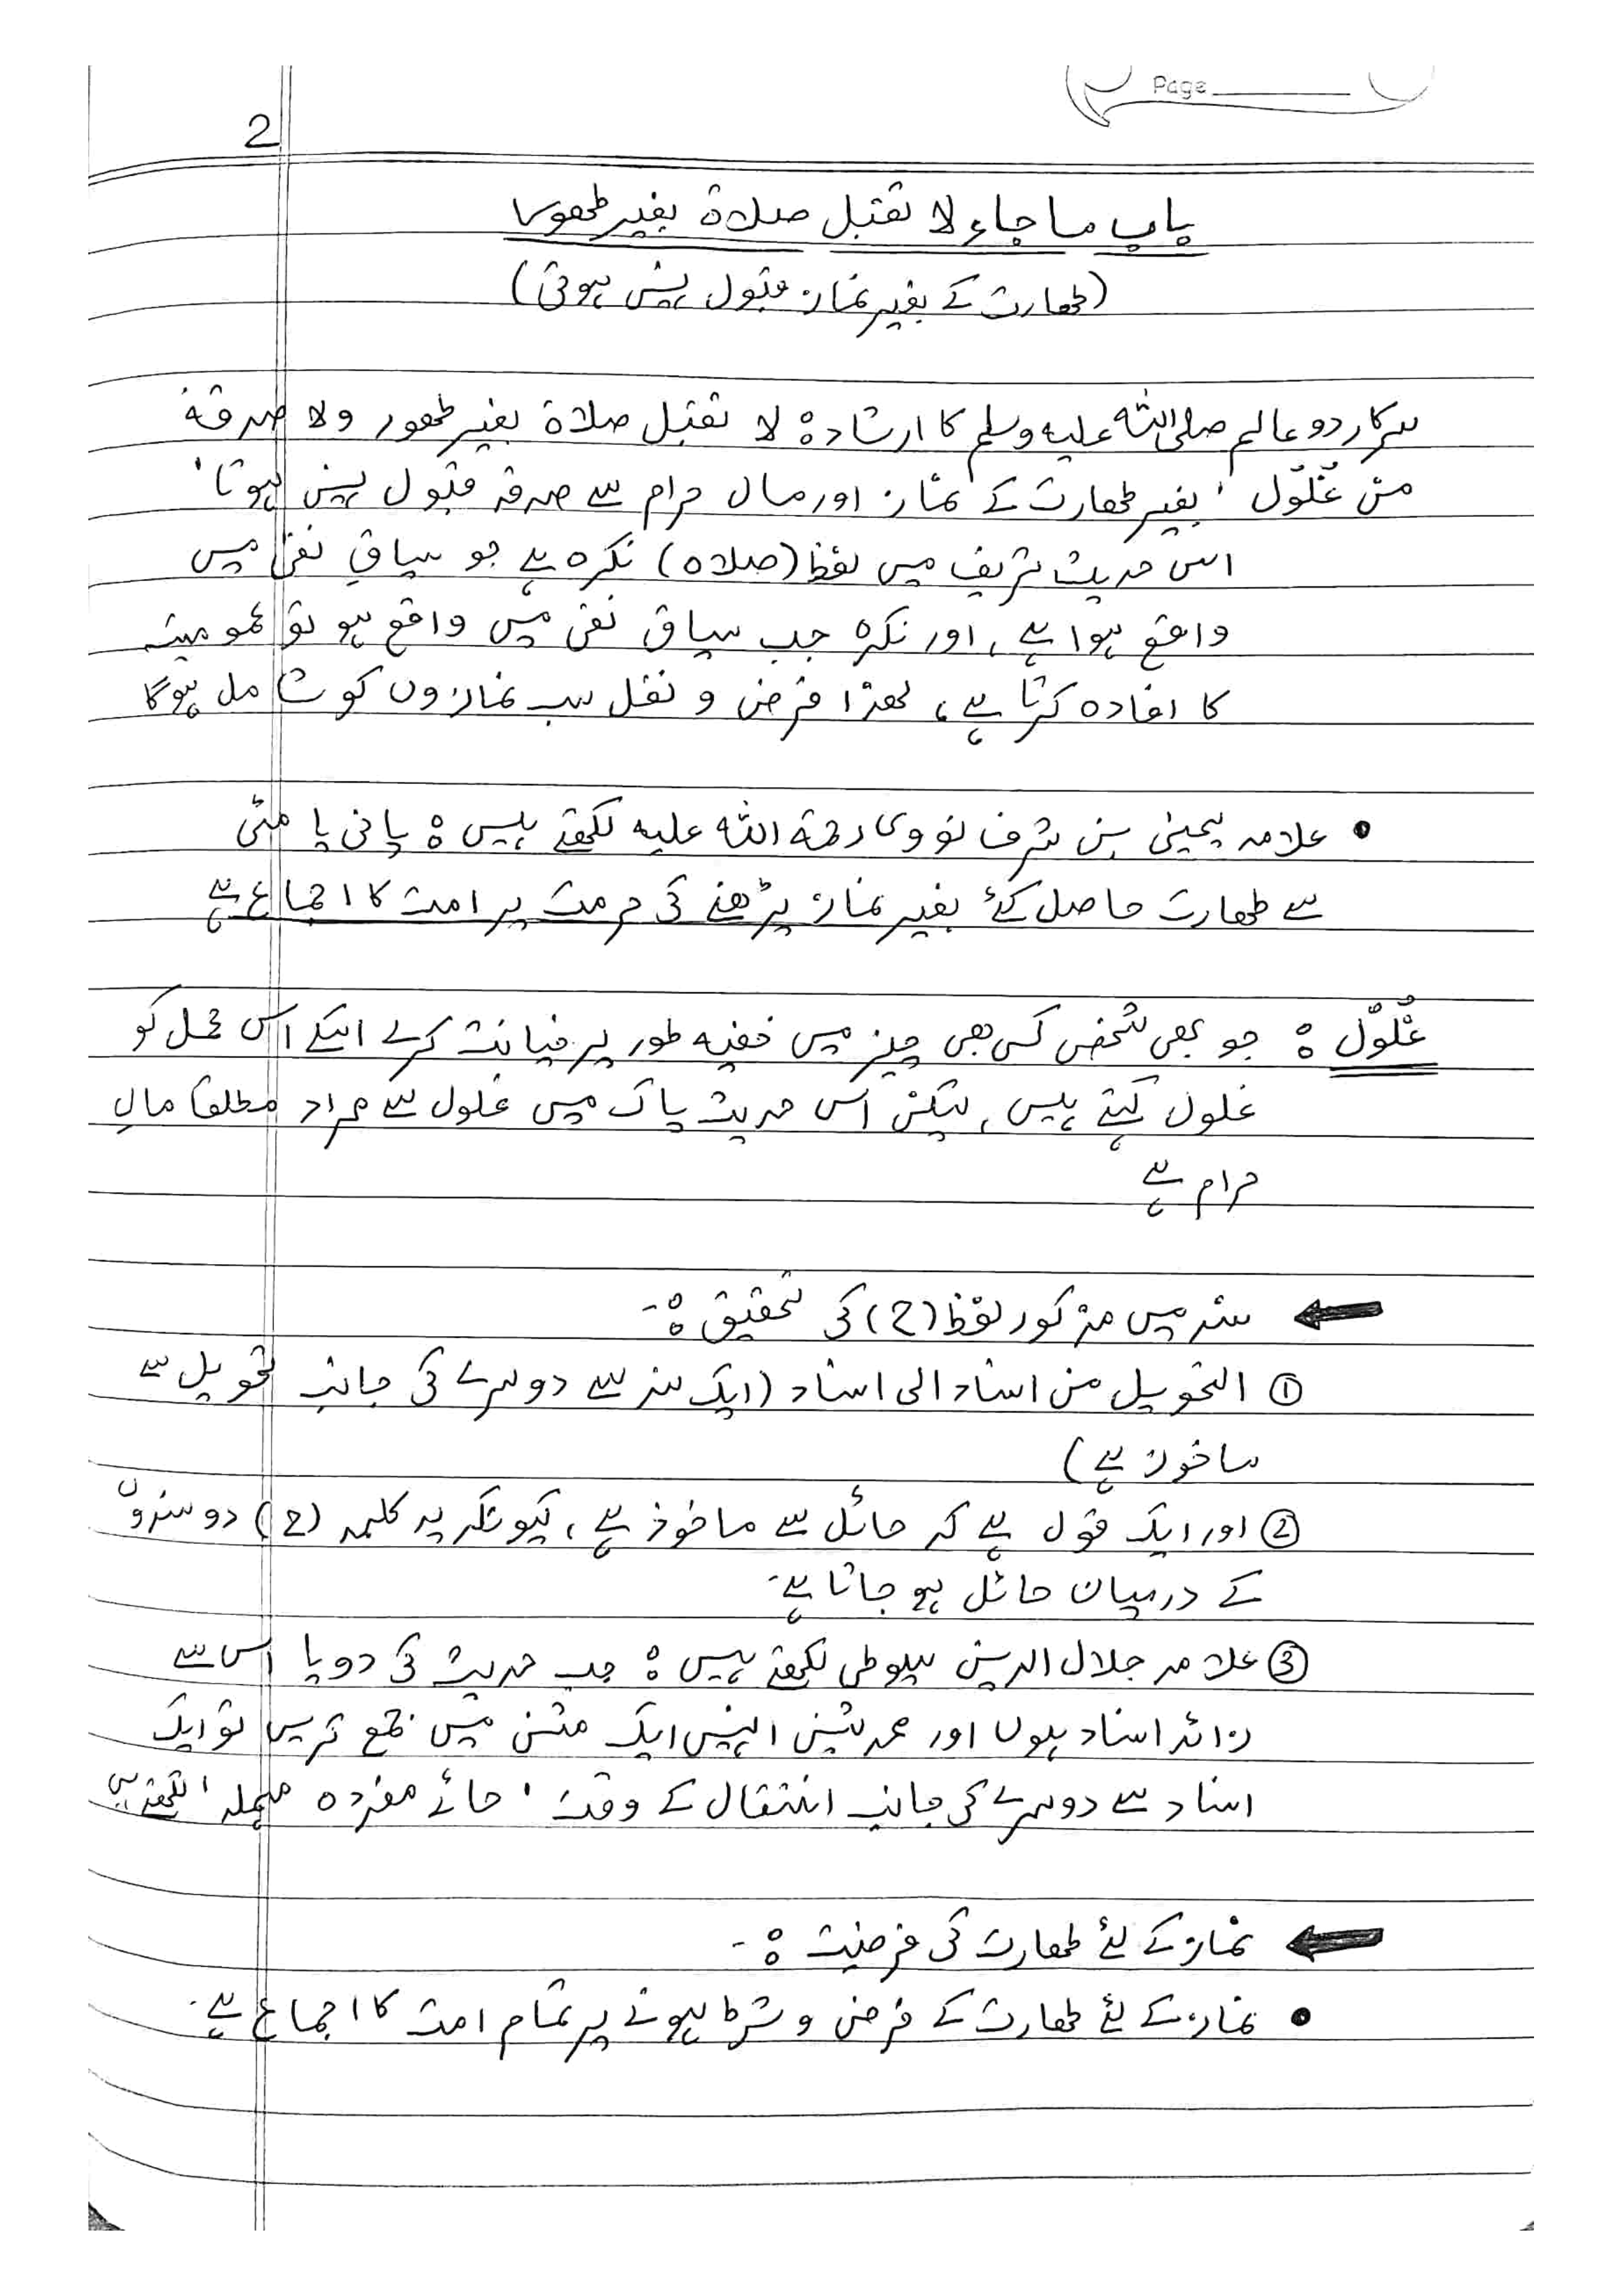 Page
2
باب ما جاء لا تقبل صلاة بغير طهور
(طہارت کے بغیر نماز قبول نہیں ہوتی)
سرکار دو عالم صلی اللہ علیہ وسلم کا ارشاد: لا تقبل صلاة بغير طهور ولا صدقة
من غُلُول ' بغیر طہارت کے نماز اور مال حرام سے صدقہ قبول نہیں ہوتا '
اس حدیث شریف میں لفظ (صلاہ) نکرہ ہے جو سیاقِ نفی میں
واقع ہوا ہے، اور نکرہ جب سیاق نفی میں واقع ہو تو عمومیت
کا افادہ کرتا ہے، لھذا فرض و نفل سب نمازوں کو شامل ہوگا
• علامہ یحییٰ بن شرف نووی رحمۃ اللہ علیہ لکھتے ہیں: پانی یا مٹی
سے طہارت حاصل کئے بغیر نماز پڑھنے کی حرمت پر امت کا اجماع ہے
غُلُوْل: جو بھی شخص کسی بھی چیز میں خفیہ طور پر خیانت کرے اسکے اس عمل کو
غلول کہتے ہیں، لیکن اس حدیث پاک میں غلول سے مراد مطلقاً مالِ
حرام ہے
← سند میں مذکور لفظ (ح) کی تحقیق:-
① التحویل من اسناد الی اسناد (ایک سند سے دوسرے کی جانب تحویل سے
ماخوذ ہے)
② اور ایک قول ہے کہ حائل سے ماخوذ ہے، کیونکہ یہ کلمہ (ح) دو سندوں
کے درمیان حائل ہو جاتا ہے۔
③ علامہ جلال الدین سیوطی لکھتے ہیں: جب حدیث کی دو یا اس سے
زائد اسناد ہوں اور محدثین انہیں ایک متن میں جمع کریں تو ایک
اسناد سے دوسرے کی جانب انتقال کے وقت ' حائے مفردہ مہملہ ' لکھتے ہیں
← نماز کے لئے طہارت کی فرضیت:-
• نماز کے لئے طہارت کے فرض و شرط ہونے پر تمام امت کا اجماع ہے۔